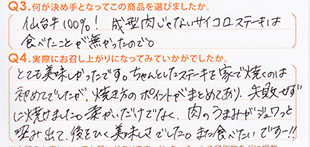 Q3.何が決め手となってこの商品を選びましたか。
仙台牛100%！ 成型肉じゃないサイコロステーキは
食べたことが無かったので。
Q4.実際にお召し上がりになってみていかがでしたか。
とても美味しかったです。ちゃんとしたステーキを家で焼くのは
初めてでしたが、焼き方のポイントがまとめてあり、失敗せず
に焼けました。柔かいだけでなく、肉のうまみがジュワっと
染み出て、後をひく美味しさでした。また食べたいでーす!!